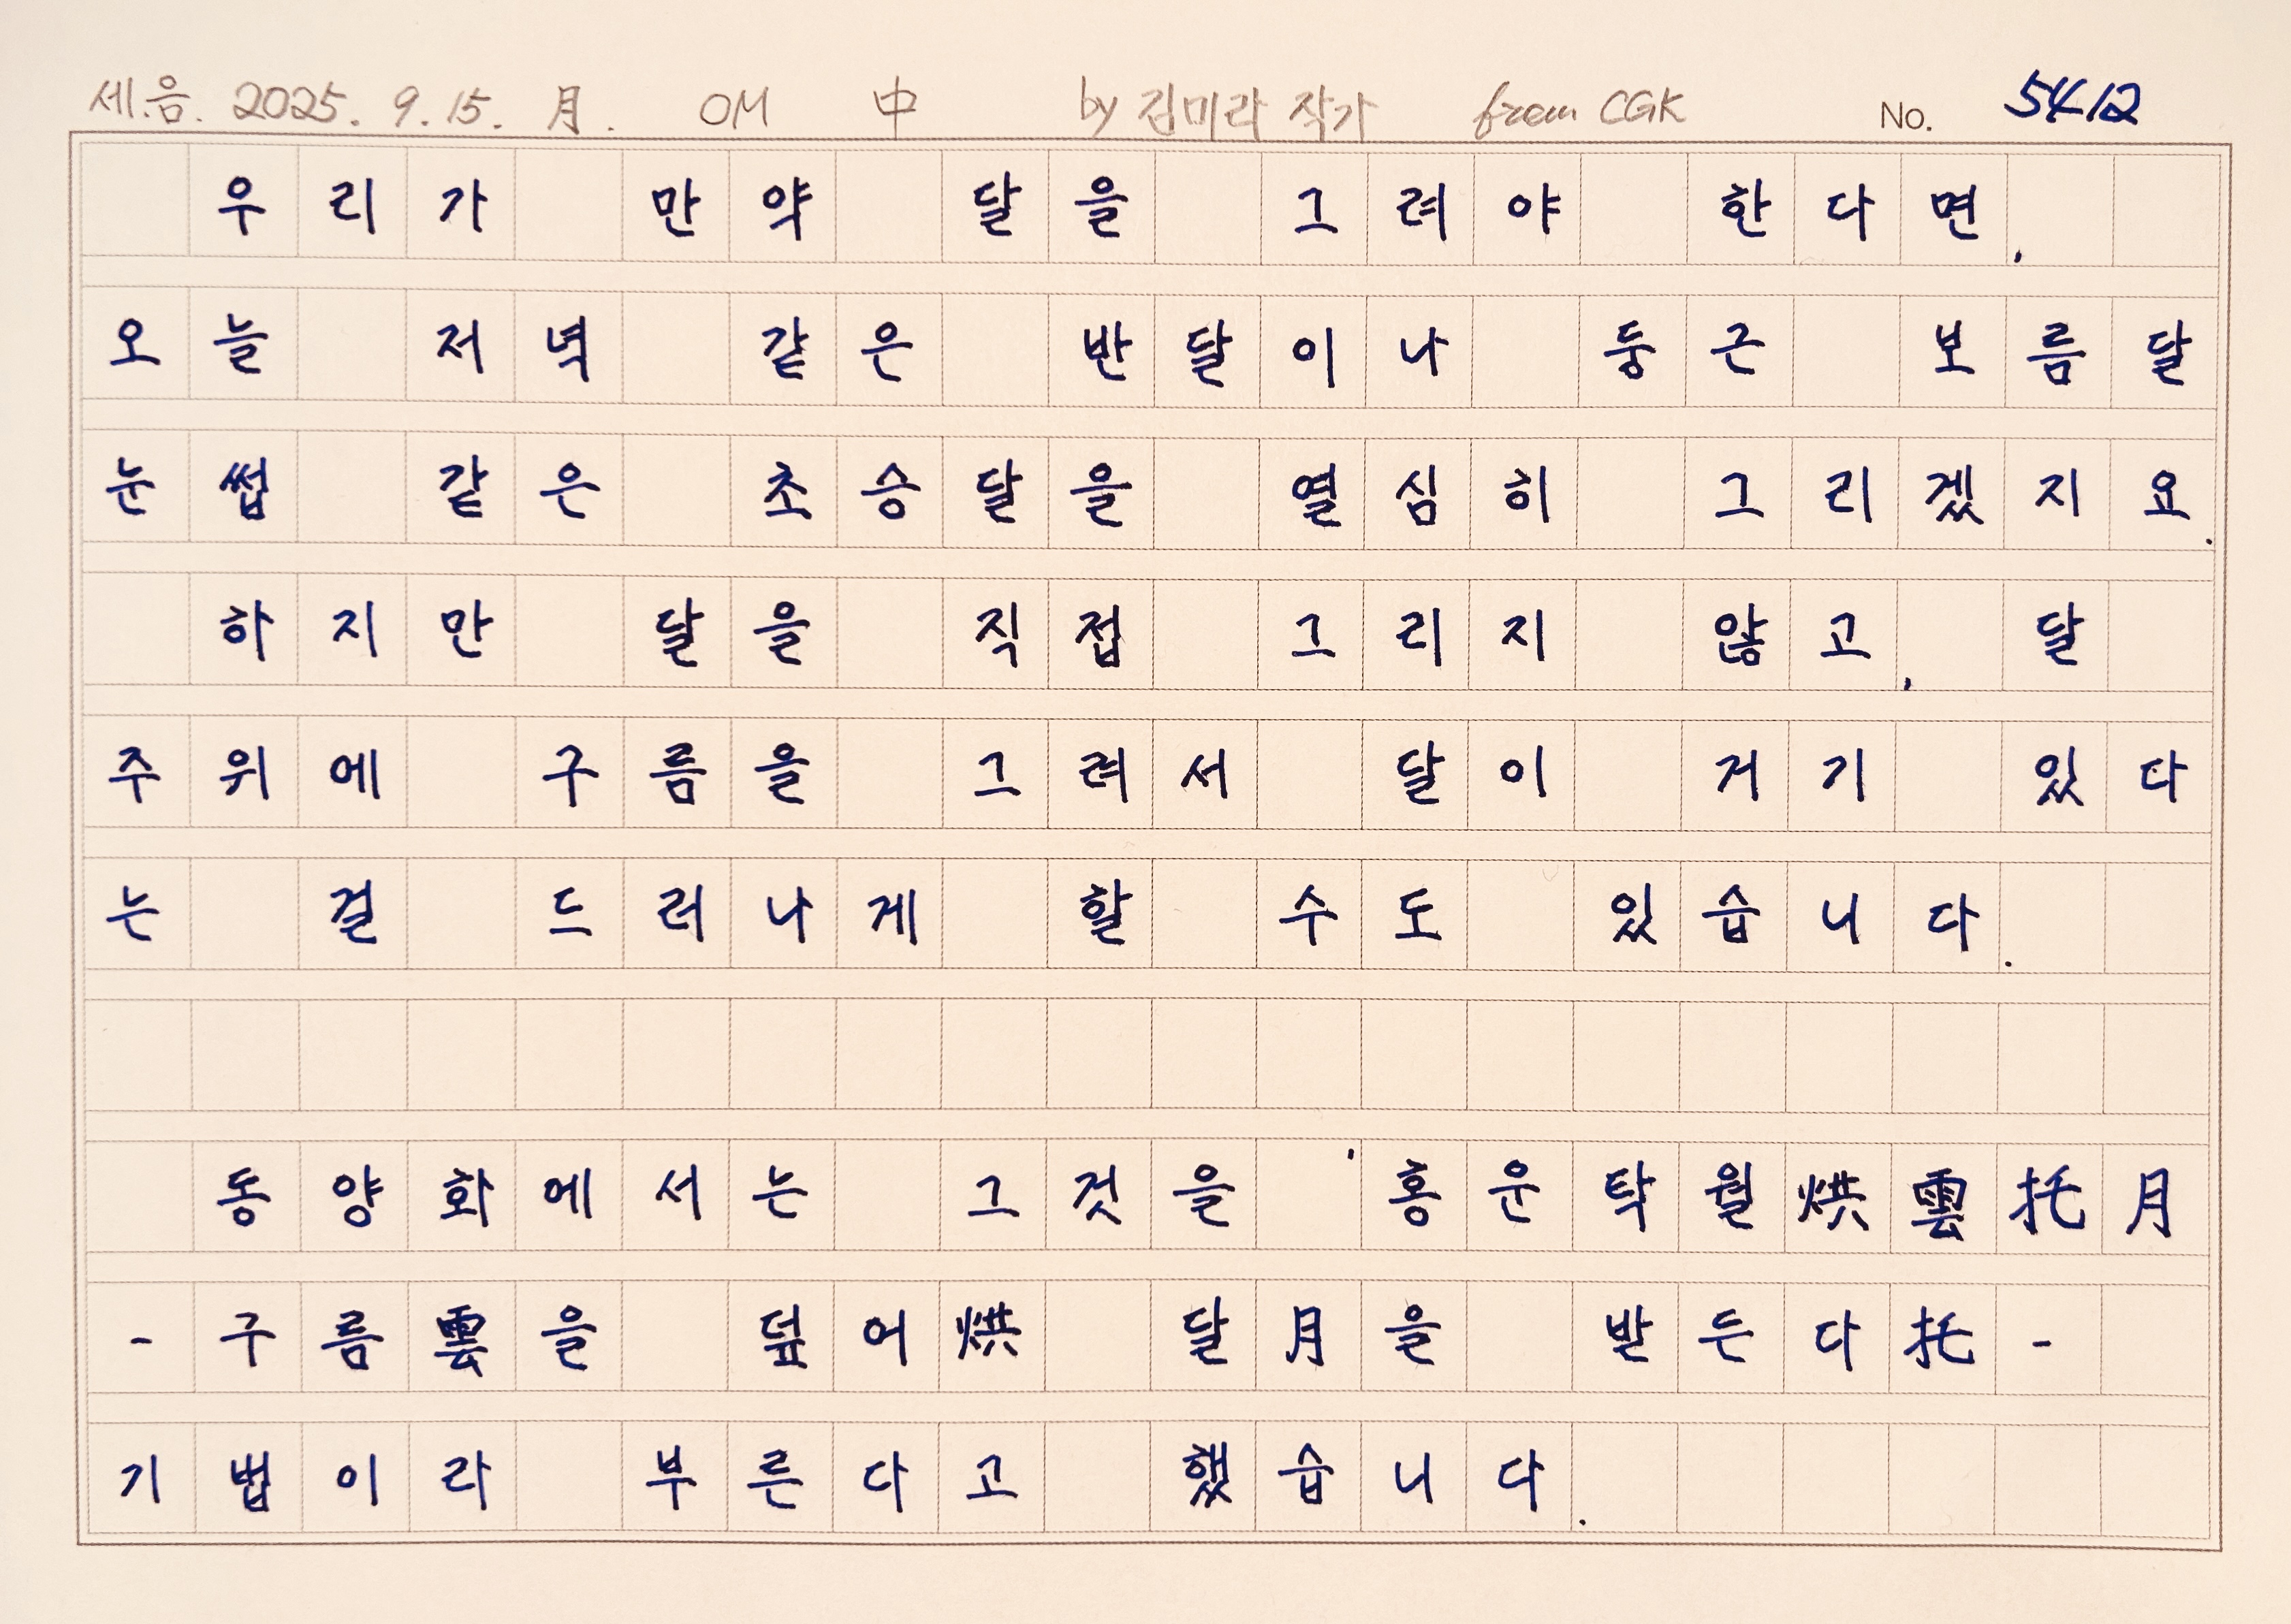 세.음. 2025. 9. 15. 月. OM 中 by 김미라 작가 from CGK No. 5412
우리가 만약 달을 그려야 한다면,
오늘 저녁 같은 반달이나 둥근 보름달
눈썹 같은 초승달을 열심히 그리겠지요.
하지만 달을 직접 그리지 않고, 달
주위에 구름을 그려서 달이 거기 있다
는 걸 드러나게 할 수도 있습니다.
동양화에서는 그것을 '홍운탁월烘雲托月
- 구름雲을 덮어烘 달月을 받든다托 -
기법이라 부른다고 했습니다.